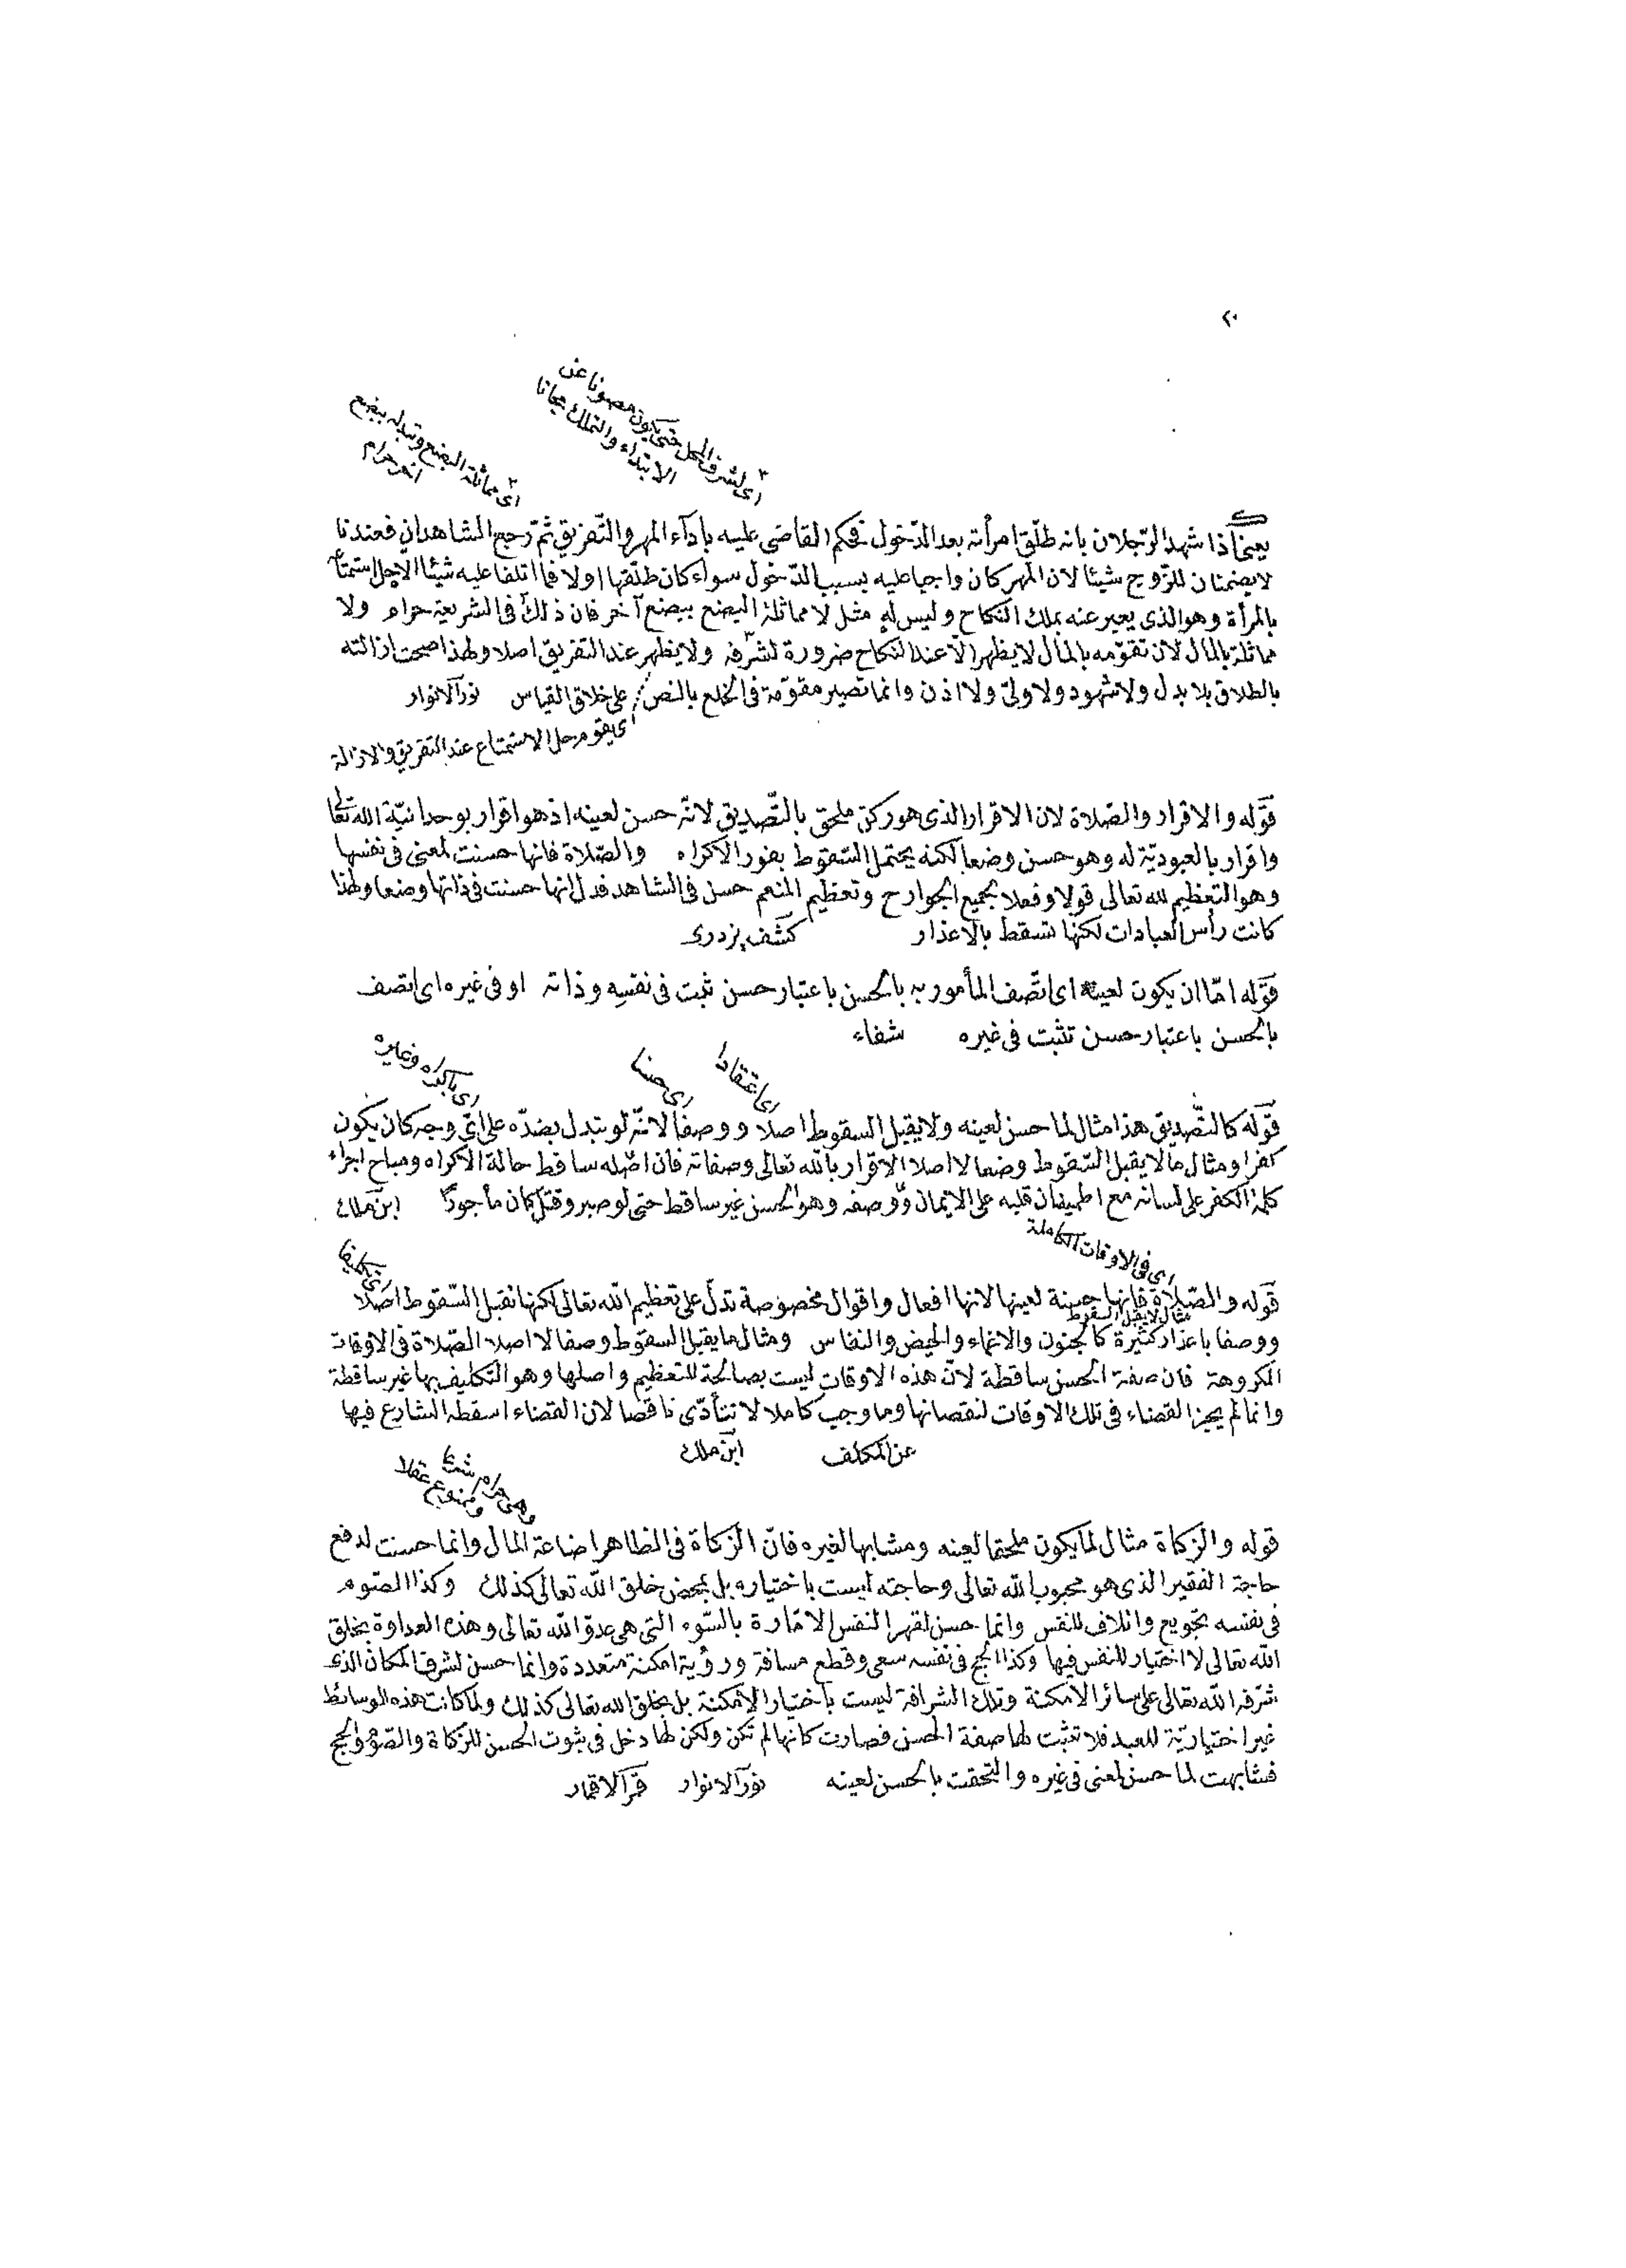 ٢٠
اى لشرف المحل حتى يكون مصونا عن
الابتذاء والتملك مجانا
اى مماثلة البضع وتبدله ببضع
آخر حرام
يعنى اذا شهد الرّجلان بانه طلّق امرأته بعد الدّخول فحكم القاضى عليه باداء المهر والتّفريق ثمّ رجع الشاهدان فعندنا
لا يضمنان للزّوج شيئا لان المهر كان واجبا عليه بسبب الدّخول سواء كان طلّقها اولا فما اتلفا عليه شيئا الا حل استمتاع
بالمرأة وهو الذى يعبر عنه بملك النكاح وليس له مثل لا مماثلة البضع ببضع آخر فان ذلك فى الشريعة حرام ولا
مماثلة بالمال لان تقوّمه بالمال لا يظهر الّا عند النكاح ضرورة لشرفه ولا يظهر عند التفريق اصلا ولهذا صحت ازالته
بالطلاق بلا بدل ولا شهود ولا ولىّ ولا اذن وانما تصير مقوّمة فى الخلع بالنص على خلاف القياس نور الانوار
اى يقوم حل الاستمتاع عند التفريق والازالة
قوله والاقرار والصّلاة لان الاقرار الذى هو ركن ملحق بالتّصديق لانّه حسن لعينه اذ هو اقرار بوحدانيّة الله تعالى
واقرار بالعبوديّة له وهو حسن وضعا لكنه يحتمل السّقوط بعذر الاكراه والصّلاة فانها حسنت لمعنى فى نفسها
وهو التعظيم لله تعالى قولا وفعلا بجميع الجوارح وتعظيم المنعم حسن فى الشاهد فدل انها حسنت فى ذاتها وضعا ولهذا
كانت رأس العبادات لكنها تسقط بالاعذار كشف پزدوى
قوله امّا ان يكون لعينه اى اتّصف المأمور به بالحسن باعتبار حسن ثبت فى نفسه وذاته او فى غيره اى اتصف
بالحسن باعتبار حسن تثبت فى غيره شفاء
اى اعتقادا
اى حسنا
اى باكراه وغيره
قوله كالتّصديق هذا مثال لما حسن لعينه ولا يقبل السقوط اصلا ووصفا لانّه لو تبدل بضدّه على اىّ وجه كان يكون
كفرا ومثال ما لا يقبل السّقوط وضعا لا اصلا الاقرار بالله تعالى وصفاته فان اصله ساقط حالة الاكراه ومباح اجراء
كلمة الكفر على لسانه مع اطمينان قلبه على الايمان ووصفه وهو الحسن غير ساقط حتى لو صبر وقتل كان مأجورا ابن ملك
اى فى الاوقات الكاملة
اى تكليفا
قوله والصّلاة فانها حسنة لعينها لانها افعال واقوال مخصوصة تدلّ على تعظيم الله تعالى لكنها تقبل السّقوط اصلا
مثال لا يقبل السقوط
ووصفا باعذار كثيرة كالجنون والاغماء والحيض والنفاس ومثال ما يقبل السقوط وصفا لا اصلا الصّلاة فى الاوقات
المكروهة فان صفة الحسن ساقطة لانّ هذه الاوقات ليست بصالحة للتعظيم واصلها وهو التكليف بها غير ساقطة
وانما لم يجز القضاء فى تلك الاوقات لنقصانها وما وجب كاملا لا تتأدّى ناقصا لان القضاء اسقطه الشارع فيها
عن المكلف ابن ملك
وهى حرام شرعا
وممنوع عقلا
قوله والزكاة مثال لما يكون ملحقا لعينه ومشابها لغيره فانّ الزكاة فى الظاهر اضاعة المال وانما حسنت لدفع
حاجة الفقير الذى هو محبوب الله تعالى وحاجته ليست باختياره بل بمحض خلق الله تعالى كذلك وكذا الصّوم
فى نفسه تجويع واتلاف للنفس وانما حسن لقهر النفس الامّارة بالسّوء التى هى عدوّ الله تعالى وهذه العداوة بخلق
الله تعالى لا اختيار للنفس فيها وكذا الحج فى نفسه سعى وقطع مسافة ورؤية امكنة متعددة وانما حسن لشرف المكان الذى
شرّفه الله تعالى على سائر الامكنة وتلك الشرافة ليست باختيار الامكنة بل بخلق الله تعالى كذلك ولما كانت هذه الوسائط
غير اختياريّة للعبد فلا تثبت لها صفة الحسن فصارت كانها لم تكن ولكن لها دخل فى ثبوت الحسن للزكاة والصّوم والحج
فشابهت لما حسن لمعنى فى غيره والتحقت بالحسن لعينه نور الانوار قمر الاقمار